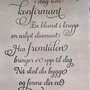 I dag som
konfirmant
En blomst i knopp
en uslipt diamant
Hva fremtiden
bringer er opp til deg
Nå skal du bygge
og forme din